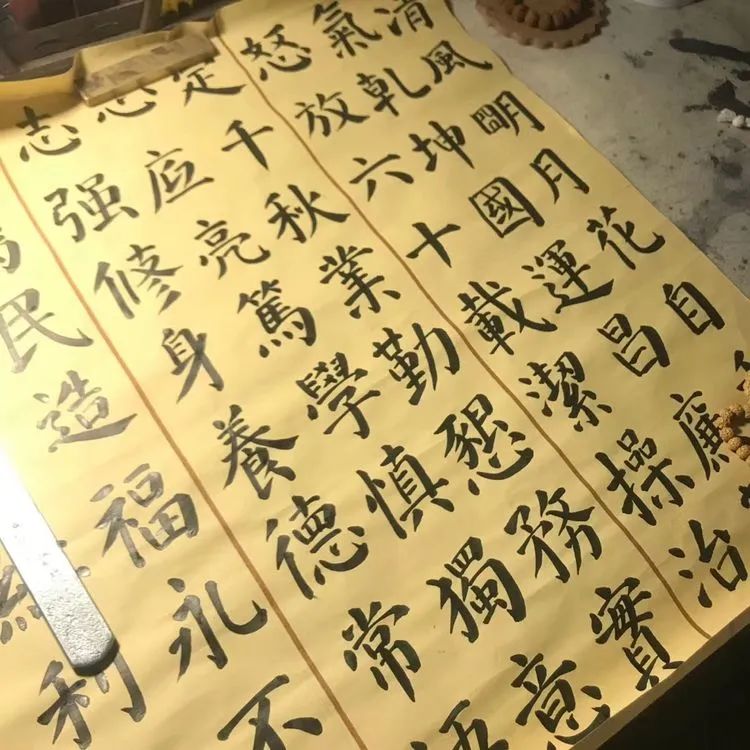 清風明月花自
氣乾坤國運昌廉
怒放六十載潔操治
定千秋業勤懇務實
应亮篤學慎獨意
志强修身養德常悟
民造福永不
利